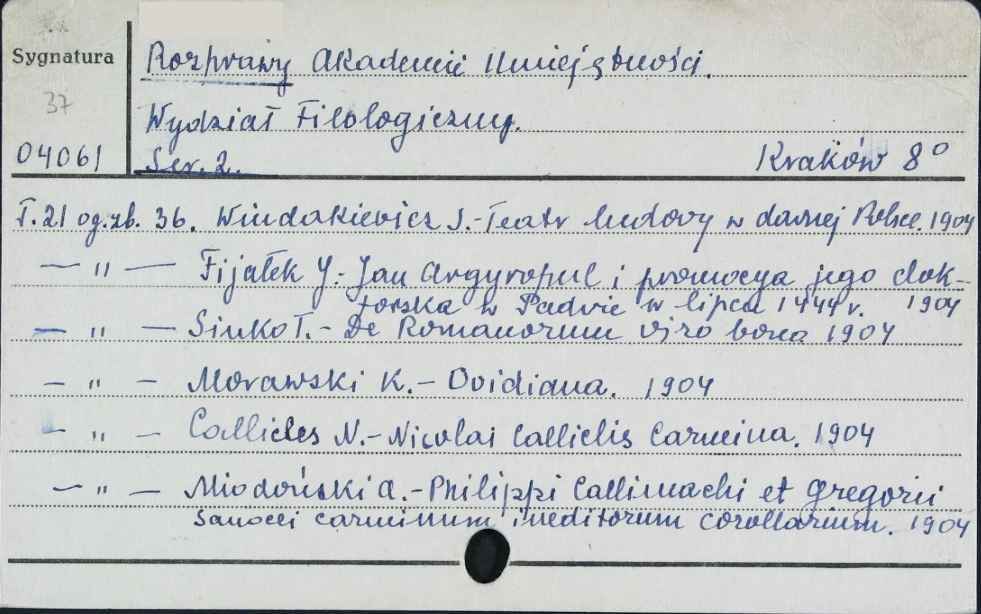 Sygnatura
37
04061
Rozprawy Akademii Umiejętności.
Wydział Filologiczny.
Ser. 2. Kraków 8°
T. 21 og. zb. 36. Windakiewicz S. - Teatr ludowy w dawnej Polsce. 1904
— " — Fijałek J. - Jan Argyropul i promocya jego dok-
torska w Padwie w lipcu 1444 r. 1904
— " — Sinko T. - De Romanorum viro bono 1904
— " — Morawski K. - Ovidiana. 1904
— " — Callicles N. - Nicolai Calliclis Carmina. 1904
— " — Miodoński A. - Philippi Callimachi et Gregorii
Sanocei carminum ineditorum corollarium. 1904